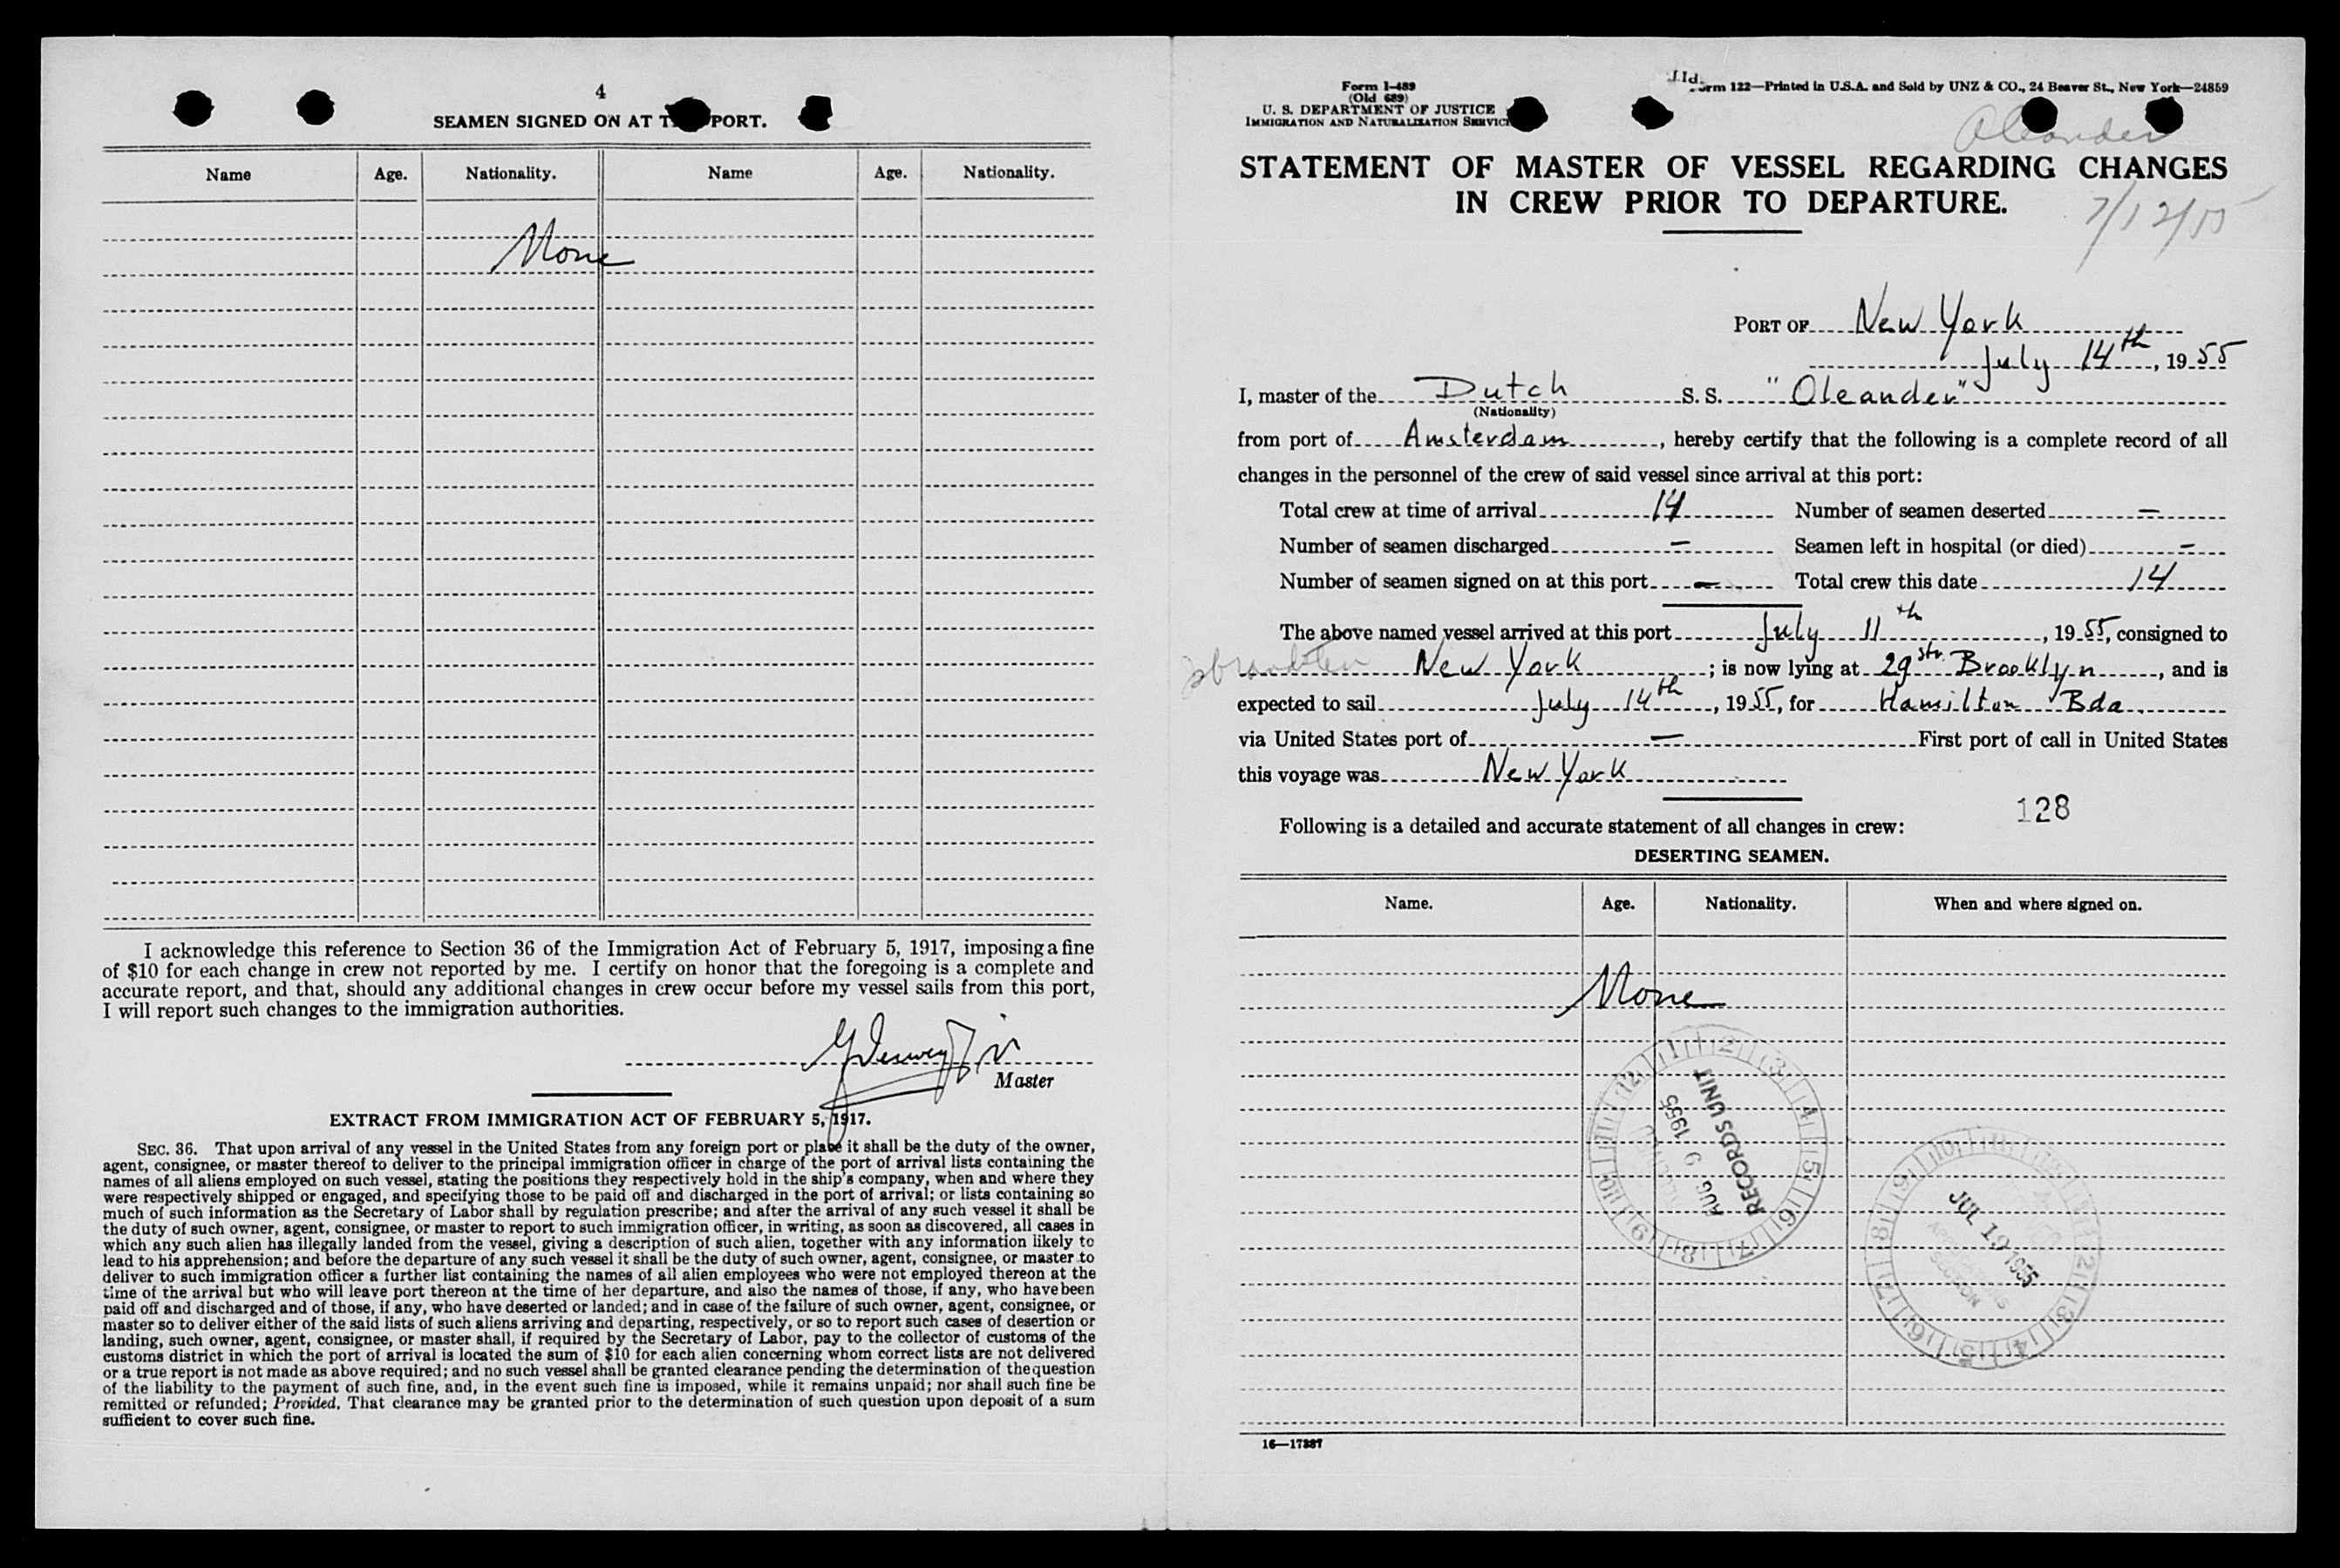 4
SEAMEN SIGNED ON AT T PORT.
Name Age. Nationality. Name Age. Nationality.
None
I acknowledge this reference to Section 36 of the Immigration Act of February 5, 1917, imposing a fine
of $10 for each change in crew not reported by me. I certify on honor that the foregoing is a complete and
accurate report, and that, should any additional changes in crew occur before my vessel sails from this port,
I will report such changes to the immigration authorities.
Master
EXTRACT FROM IMMIGRATION ACT OF FEBRUARY 5, 1917.
SEC. 36. That upon arrival of any vessel in the United States from any foreign port or place it shall be the duty of the owner,
agent, consignee, or master thereof to deliver to the principal immigration officer in charge of the port of arrival lists containing the
names of all aliens employed on such vessel, stating the positions they respectively hold in the ship's company, when and where they
were respectively shipped or engaged, and specifying those to be paid off and discharged in the port of arrival; or lists containing so
much of such information as the Secretary of Labor shall by regulation prescribe; and after the arrival of any such vessel it shall be
the duty of such owner, agent, consignee, or master to report to such immigration officer, in writing, as soon as discovered, all cases in
which any such alien has illegally landed from the vessel, giving a description of such alien, together with any information likely to
lead to his apprehension; and before the departure of any such vessel it shall be the duty of such owner, agent, consignee, or master to
deliver to such immigration officer a further list containing the names of all alien employees who were not employed thereon at the
time of the arrival but who will leave port thereon at the time of her departure, and also the names of those, if any, who have been
paid off and discharged and of those, if any, who have deserted or landed; and in case of the failure of such owner, agent, consignee, or
master so to deliver either of the said lists of such aliens arriving and departing, respectively, or so to report such cases of desertion or
landing, such owner, agent, consignee, or master shall, if required by the Secretary of Labor, pay to the collector of customs of the
customs district in which the port of arrival is located the sum of $10 for each alien concerning whom correct lists are not delivered
or a true report is not made as above required; and no such vessel shall be granted clearance pending the determination of the question
of the liability to the payment of such fine, and, in the event such fine is imposed, while it remains unpaid; nor shall such fine be
remitted or refunded; Provided, That clearance may be granted prior to the determination of such question upon deposit of a sum
sufficient to cover such fine.
Form I-489
(Old 689)
U. S. DEPARTMENT OF JUSTICE
IMMIGRATION AND NATURALIZATION SERVIC
Form 122—Printed in U.S.A. and Sold by UNZ & CO., 24 Beaver St., New York—24859
Oleander
STATEMENT OF MASTER OF VESSEL REGARDING CHANGES
IN CREW PRIOR TO DEPARTURE.
7/12/55
PORT OF New York
July 14th, 1955
I, master of the Dutch S. S. "Oleander"
(Nationality)
from port of Amsterdam, hereby certify that the following is a complete record of all
changes in the personnel of the crew of said vessel since arrival at this port:
Total crew at time of arrival 14 Number of seamen deserted —
Number of seamen discharged — Seamen left in hospital (or died) —
Number of seamen signed on at this port — Total crew this date 14
The above named vessel arrived at this port July 11th, 1955, consigned to
New York; is now lying at 29 str. Brooklyn, and is
expected to sail July 14th, 1955, for Hamilton Bda.
via United States port of — First port of call in United States
this voyage was New York
128
Following is a detailed and accurate statement of all changes in crew:
DESERTING SEAMEN.
Name. Age. Nationality. When and where signed on.
None
AUG 9 1955
RECORDS UNIT
JUL 19 1955
SECTION
16—17387